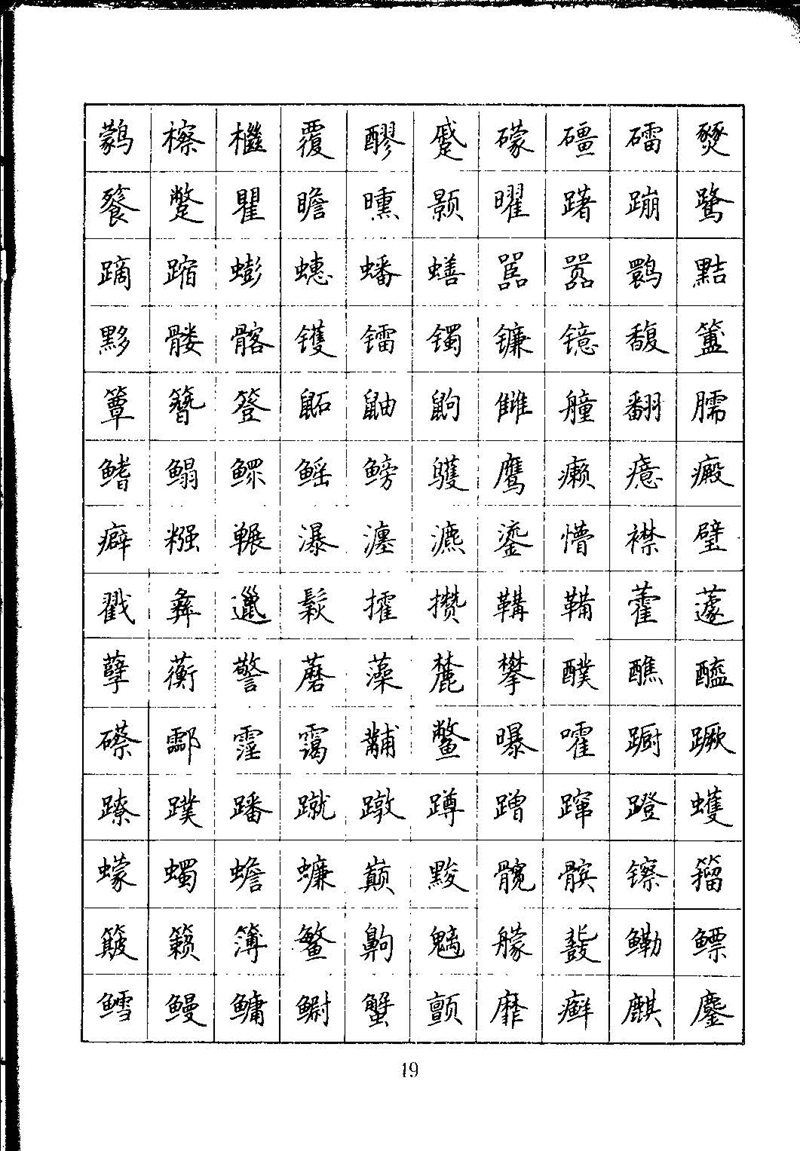 鹲檫檵覆醪蹙礞礓礌燹
餮蹩瞿瞻曛颢曜躇蹦鹭
蹢蹜蟛蟪蟠蟮嚚嚣鹮黠
黟髅髂镬镭镯镰镱馥簠
簟簪簦鼫鼬鼩雠艟翻臑
鳍鳎鳏鳐鳑鹱鹰癞癔癜
癖糨冁瀑瀍瀌鎏懵襟璧
戳彝邋鬏攉攒鞲鞴藿蘧
孽蘅警蘑藻麓攀醭醮醯
礤酃霪霭黼鳖曝嚯蹰蹶
蹽蹼蹯蹴蹾蹲蹭蹿蹬蠖
蠓蠋蟾蠊巅黢髋髌镲籀
簸籁簿鳘齁魑艨鼗鳓鳔
鳕鳗鳙鳚蟹颤靡癣麒鏖
19